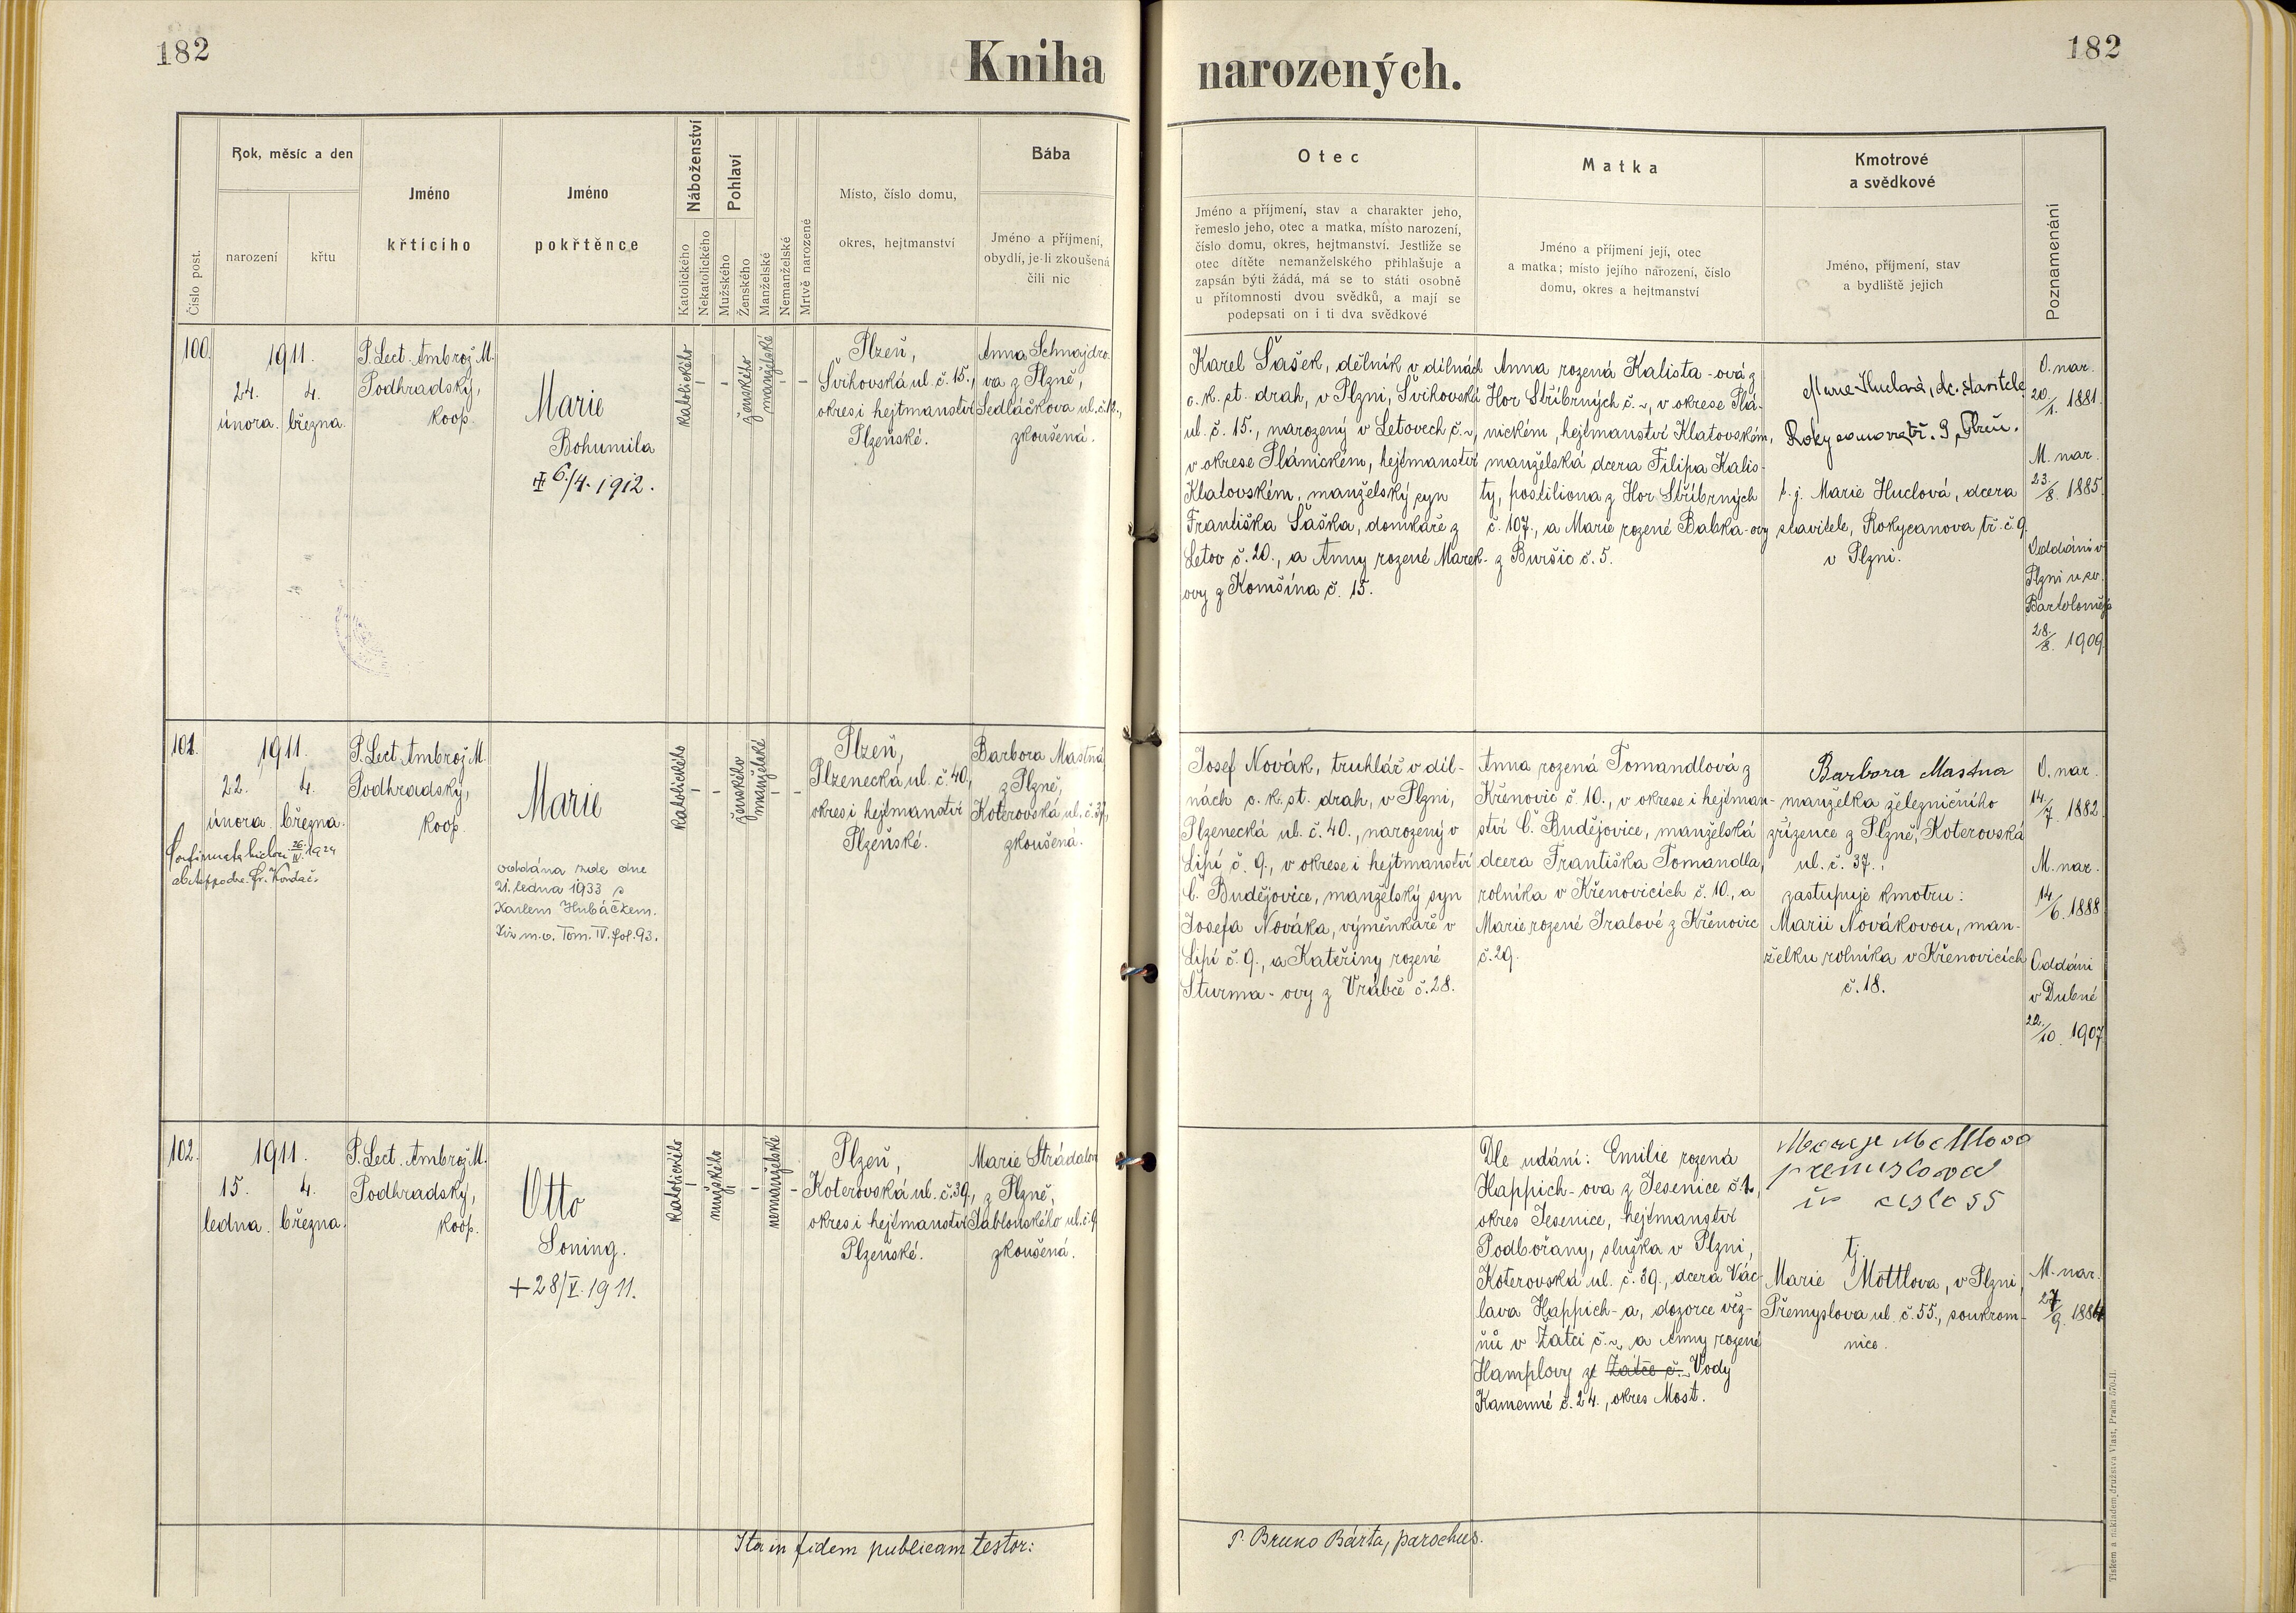 182
Kniha
narozených.
182
Číslo post.
Rok, měsíc a den
narození
křtu
Jméno
křtícího
Jméno
pokřtěnce
Náboženství
Katolického
Nekatolického
Pohlaví
Mužského
Ženského
Manželské
Nemanželské
Mrtvě narozené
Místo, číslo domu,
okres, hejtmanství
Bába
Jméno a příjmení,
obydlí, je-li zkoušená
čili nic
Otec
Jméno a příjmení, stav a charakter jeho,
řemeslo jeho, otec a matka, místo narození,
číslo domu, okres, hejtmanství. Jestliže se
otec dítěte nemanželského přihlašuje a
zapsán býti žádá, má se to státi osobně
u přítomnosti dvou svědků, a mají se
podepsati on i ti dva svědkové
Matka
Jméno a příjmení její, otec
a matka; místo jejího narození, číslo
domu, okres a hejtmanství
Kmotrové
a svědkové
Jméno, příjmení, stav
a bydliště jejich
Poznamenání
100.
1911.
24.
února.
4.
března.
P. Lect. Ambrož M.
Podhradský,
koop.
Marie
Bohumila
6./4. 1912.
katolického
ženského
manželské
Plzeň,
Švihovská ul. č. 15.,
okres i hejtmanství
Plzeňské.
Anna Schnajdro-
va z Plzně,
Sedláčkova ul. č. 12.,
zkoušená.
Karel Šašek, dělník v dílnách
c. k. st. drah, v Plzni, Švihovská
ul. č. 15., narozený v Letovech č. ~,
v okrese Plánickém, hejtmanství
Klatovském, manželský syn
Františka Šaška, domkáře z
Letov č. 20., a Anny rozené Marek-
ovy z Komšína č. 15.
Anna rozená Kalista-ová z
Hor Stříbrných č. ~, v okrese Plá-
nickém, hejtmanství Klatovském,
manželská dcera Filipa Kalis-
ty, postiliona z Hor Stříbrných
č. 107., a Marie rozené Babka-ovy
z Buršic č. 5.
Marie Huclová, dc. stavitele
Rokycanova tř. 9 Plzeň.
t. j. Marie Huclová, dcera
stavitele, Rokycanova tř. č. 9.
v Plzni.
O. nar.
20./1. 1881.
M. nar.
23./8. 1885.
Oddáni v
Plzni u sv.
Bartoloměje
28./8. 1909.
101.
1911.
22.
února.
4.
března.
P. Lect. Ambrož M.
Podhradský,
koop.
26./IV. 1924
Fr. Kordač.
Marie
oddána zde dne
21. ledna 1933 s
Karlem Hubáčkem.
Viz m. o. Tom. IV. fol. 93.
katolického
ženského
manželské
Plzeň,
Plzenecká ul. č. 40.,
okres i hejtmanství
Plzeňské.
Barbora Mastná
z Plzně,
Koterovská ul. č. 37.,
zkoušená.
Josef Novák, truhlář v díl-
nách c. k. st. drah, v Plzni,
Plzenecká ul. č. 40., narozený v
Lipí č. 9., v okrese i hejtmanství
Č. Budějovice, manželský syn
Josefa Nováka, výměnkáře v
Lipí č. 9., a Kateřiny rozené
Šturma-ovy z Vrábče č. 28.
Anna rozená Tomandlová z
Křenovic č. 10., v okrese i hejtman-
ství Č. Budějovice, manželská
dcera Františka Tomandla,
rolníka v Křenovicích č. 10., a
Marie rozené Iralové z Křenovic
č. 29.
Barbora Mastna
manželka železničního
zřízence z Plzně, Koterovská
ul. č. 37.,
zastupuje kmotru:
Marii Novákovou, man-
želku rolníka v Křenovicích
č. 18.
O. nar.
14./7. 1882.
M. nar.
14./6. 1888.
Oddáni
v Dubné
22./10. 1907.
102.
1911.
15.
ledna.
4.
března.
P. Lect. Ambrož M.
Podhradský,
koop.
Otto
Soning.
+ 28/V. 1911.
katolického
mužského
nemanželské
Plzeň,
Koterovská ul. č. 39.,
okres i hejtmanství
Plzeňské.
Marie Strádalová
z Plzně,
Jablonského ul. č. 9.
zkoušená.
Dle udání: Emilie rozená
Happich-ova z Jesenice č. 1.,
okres Jesenice, hejtmanství
Podbořany, služka v Plzni,
Koterovská ul. č. 39., dcera Vác-
lava Happich-a, dozorce věz-
ňů v Žatci č. ~, a Anny rozené
Hamplovy ze Žatce č. ~ Vody
Kamenné č. 24., okres Most.
Marje Mottlova
premislova
čislo 55
tj.
Marie Mottlova, v Plzni,
Přemyslova ul. č. 55., soukrom-
nice.
M. nar.
27./9. 1884
Ita in fidem publicam testor:
P. Bruno Bárta, parochus.
Tiskem a nákladem družstva Vlast, Praha 570-II